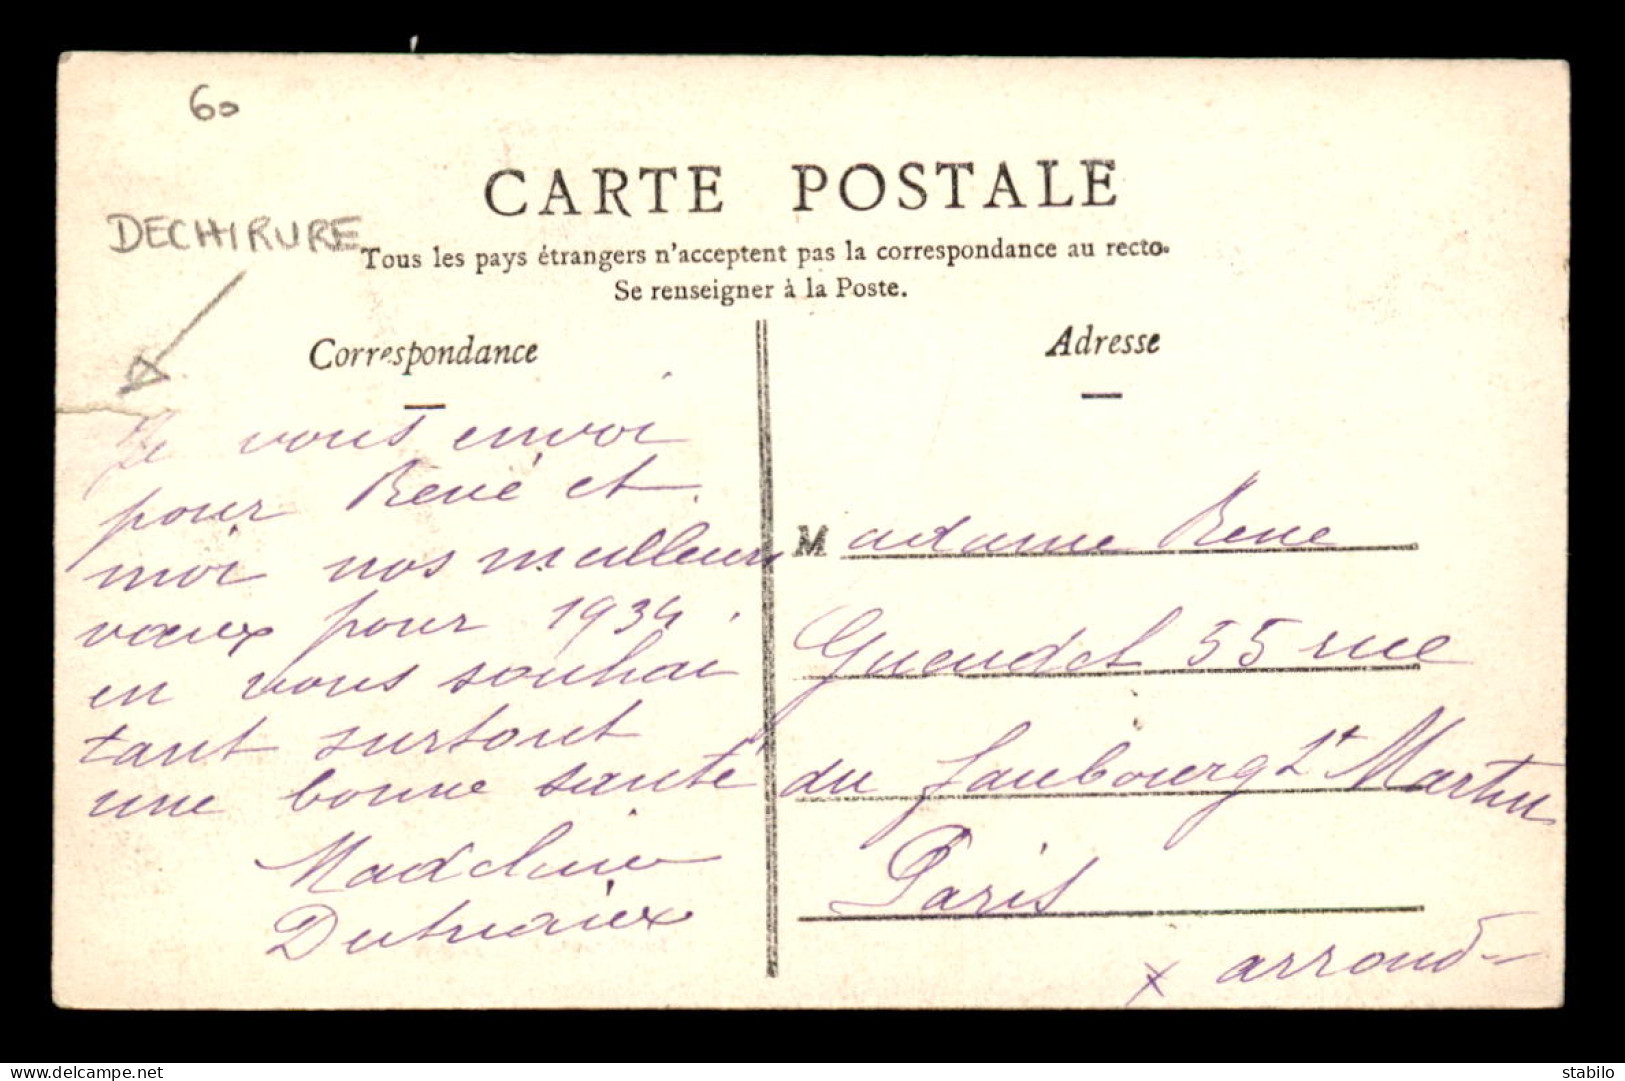 60
DECHIRURE
CARTE POSTALE
Tous les pays étrangers n'acceptent pas la correspondance au recto.
Se renseigner à la Poste.
Correspondance
Je vous envoi
pour René et
moi nos meilleurs
vœux pour 1934.
en vous souhai
tant surtout
une bonne santé
Madeleine
Adresse
Madame Rene
Gueudet 55 rue
du faubourg St Martin
Paris
x arrond
delcampe.net
stabilo